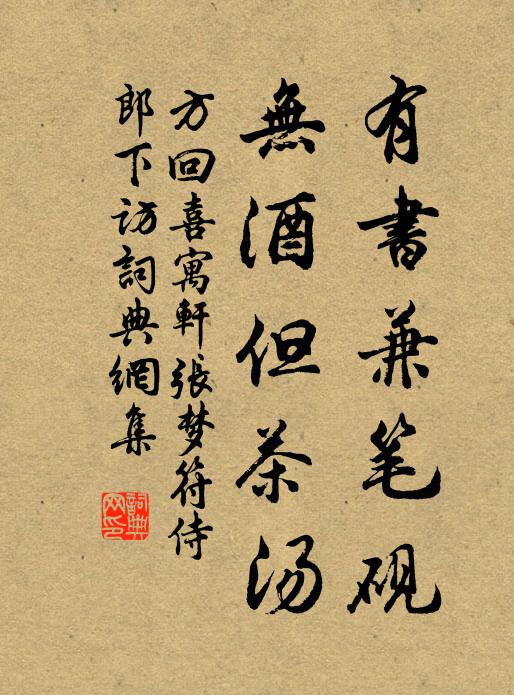 有書兼笔砚
無酒但茶汤
方回喜寓軒張梦符侍
郎下访詞典網集
詞典网印